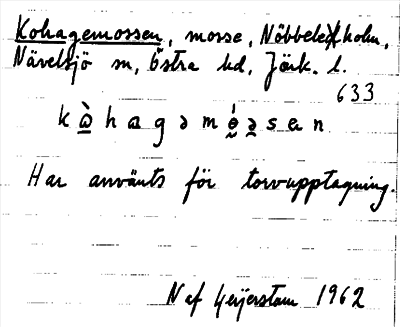 Kohagemossen, mosse, Nöbbeleholm,
Nävelsjö sn, Östra hd, Jönk. l.
633
Har använts för torvupptagning.
N af Geijerstam 1962